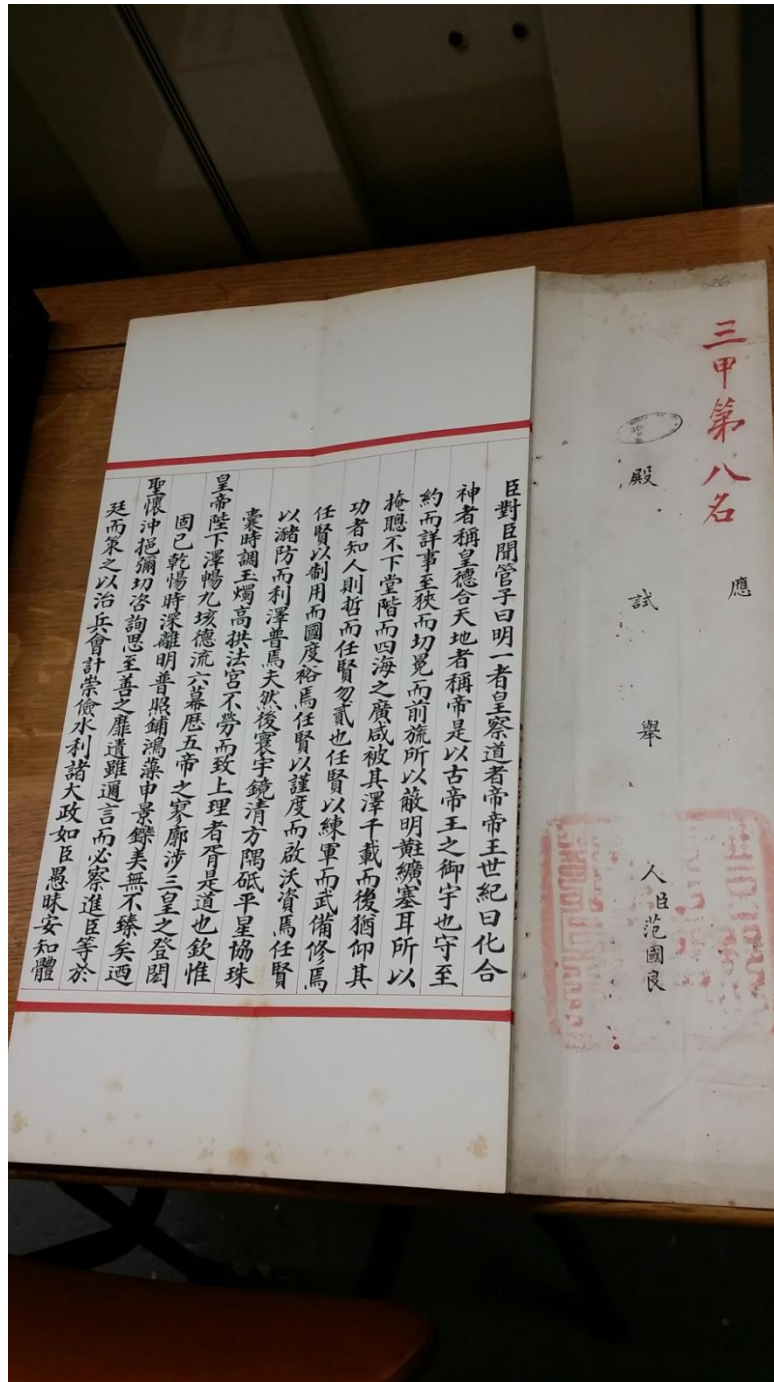 三甲第八名
應
殿試舉
人臣范國良
臣對臣聞管子曰明一者皇察道者帝帝王世紀曰化合
神者稱皇德合天地者稱帝是以古帝王之御宇也守至
約而詳事至狹而切冕而前旒所以蔽明黈纊塞耳所以
掩聰不下堂階而四海之廣咸被其澤千載而後猶仰其
功者知人則哲而任賢勿貳也任賢以練軍而武備修焉
任賢以制用而國度裕焉任賢以謹度而啟沃資焉任賢
以瀦防而利澤普焉夫然後寰宇鏡清方隅砥平星協珠
囊時調玉燭高拱法宮不勞而致上理者胥是道也欽惟
皇帝陛下澤暢九垓德流六幕歷五帝之寥廓涉三皇之登閎
固已乾惕時深離明普照鋪鴻藻申景鑠美無不臻矣迺
聖懷沖挹彌切咨詢思至善之靡遺雖邇言而必察進臣等於
廷而策之以治兵會計崇儉水利諸大政如臣愚昧安知體